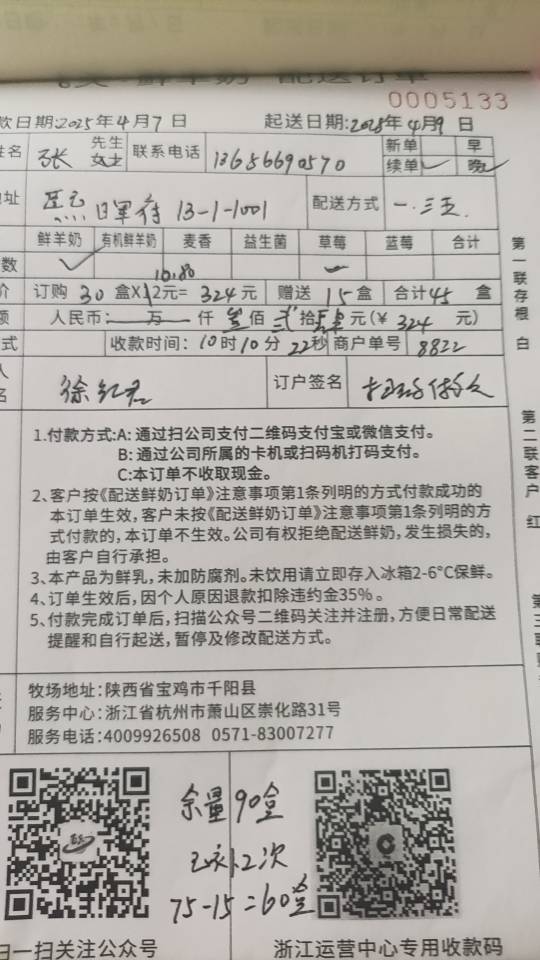 鲜羊奶 配送订单
0005133
款日期:2025年4月7日 起送日期:2025年4月9日
姓名 张 先生 女士 联系电话 13656690570 新单 早
续单✓ 晚✓
地址 13-1-1001 配送方式 一.三五
鲜羊奶 有机鲜羊奶 麦香 益生菌 草莓 蓝莓 合计
数 ✓
10.80
价 订购 30 盒X12元= 324元 赠送 15盒 合计45 盒
额 人民币: 万 仟 叁佰 贰拾肆元(¥ 324 元)
式 收款时间: 10时10分22秒 商户单号 8822
人
名 订户签名
1.付款方式:A: 通过扫公司支付二维码支付宝或微信支付。
B: 通过公司所属的卡机或扫码机打码支付。
C:本订单不收取现金。
2、客户按《配送鲜奶订单》注意事项第1条列明的方式付款成功的
本订单生效,客户未按《配送鲜奶订单》注意事项第1条列明的方
式付款的,本订单不生效。公司有权拒绝配送鲜奶,发生损失的,
由客户自行承担。
3、本产品为鲜乳,未加防腐剂。未饮用请立即存入冰箱2-6°C保鲜。
4、订单生效后,因个人原因退款扣除违约金35%。
5、付款完成订单后,扫描公众号二维码关注并注册,方便日常配送
提醒和自行起送,暂停及修改配送方式。
牧场地址:陕西省宝鸡市千阳县
服务中心:浙江省杭州市萧山区崇化路31号
服务电话:4009926508 0571-83007277
余量90盒
12次
75-15=60盒
扫一扫关注公众号
浙江运营中心专用收款码
第一联存根 白
第二联客户 红
第三联